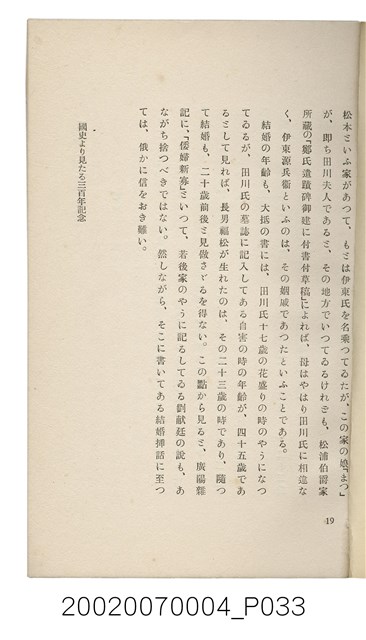 松本といふ家があつて、もとは伊東氏を名乗つてゐたが、この家の娘「まつ」
が、即ち田川夫人であると、その地方でいつてゐるけれども、松浦伯爵家
所藏の「鄭氏遺蹟碑御建に付書付草稿」によれば、母はやはり田川氏に相違な
く、伊東源兵衞といふのは、その姻戚であつたといふことである。
結婚の年齡も、大抵の書には、田川氏十七歲の花盛りの時のやうになつ
てゐるが、田川氏の墓誌に記入してある自害の時の年齡が、四十五歲であ
るとして見れば、長男福松が生れたのは、その二十三歲の時であり、隨つ
て結婚も、二十歲前後と見做さゞるを得ない。この點から見ると、廣陽雜
記に、「倭婦新寡」といつて、若後家のやうに記るしてゐる劉献廷の說も、あ
ながち捨つべきではない。然しながら、そこに書いてある結婚揷話に至つ
ては、俄かに信をおき難い。
國史より見たる三百年記念
19
20020070004_P033